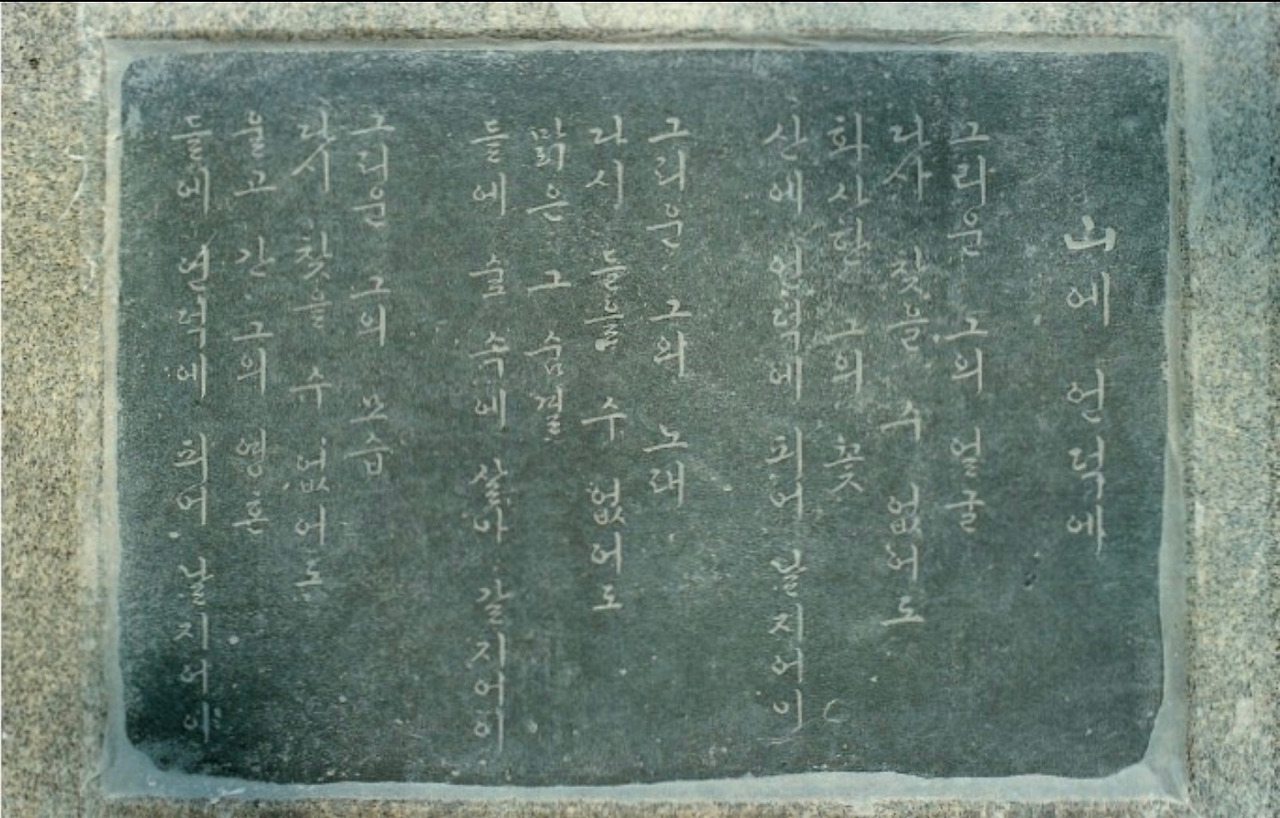 山에 언덕에
그리운 그의 얼굴
다시 찾을 수 없어도
화사한 그의 꽃
산에 언덕에 피어 날지어이
그리운 그의 노래
다시 들을 수 없어도
맑은 그 숨결
들에 숲 속에 살아 갈지어이
그리운 그의 모습
다시 찾을 수 없어도
울고 간 그의 영혼
들에 언덕에 피어 날지어이